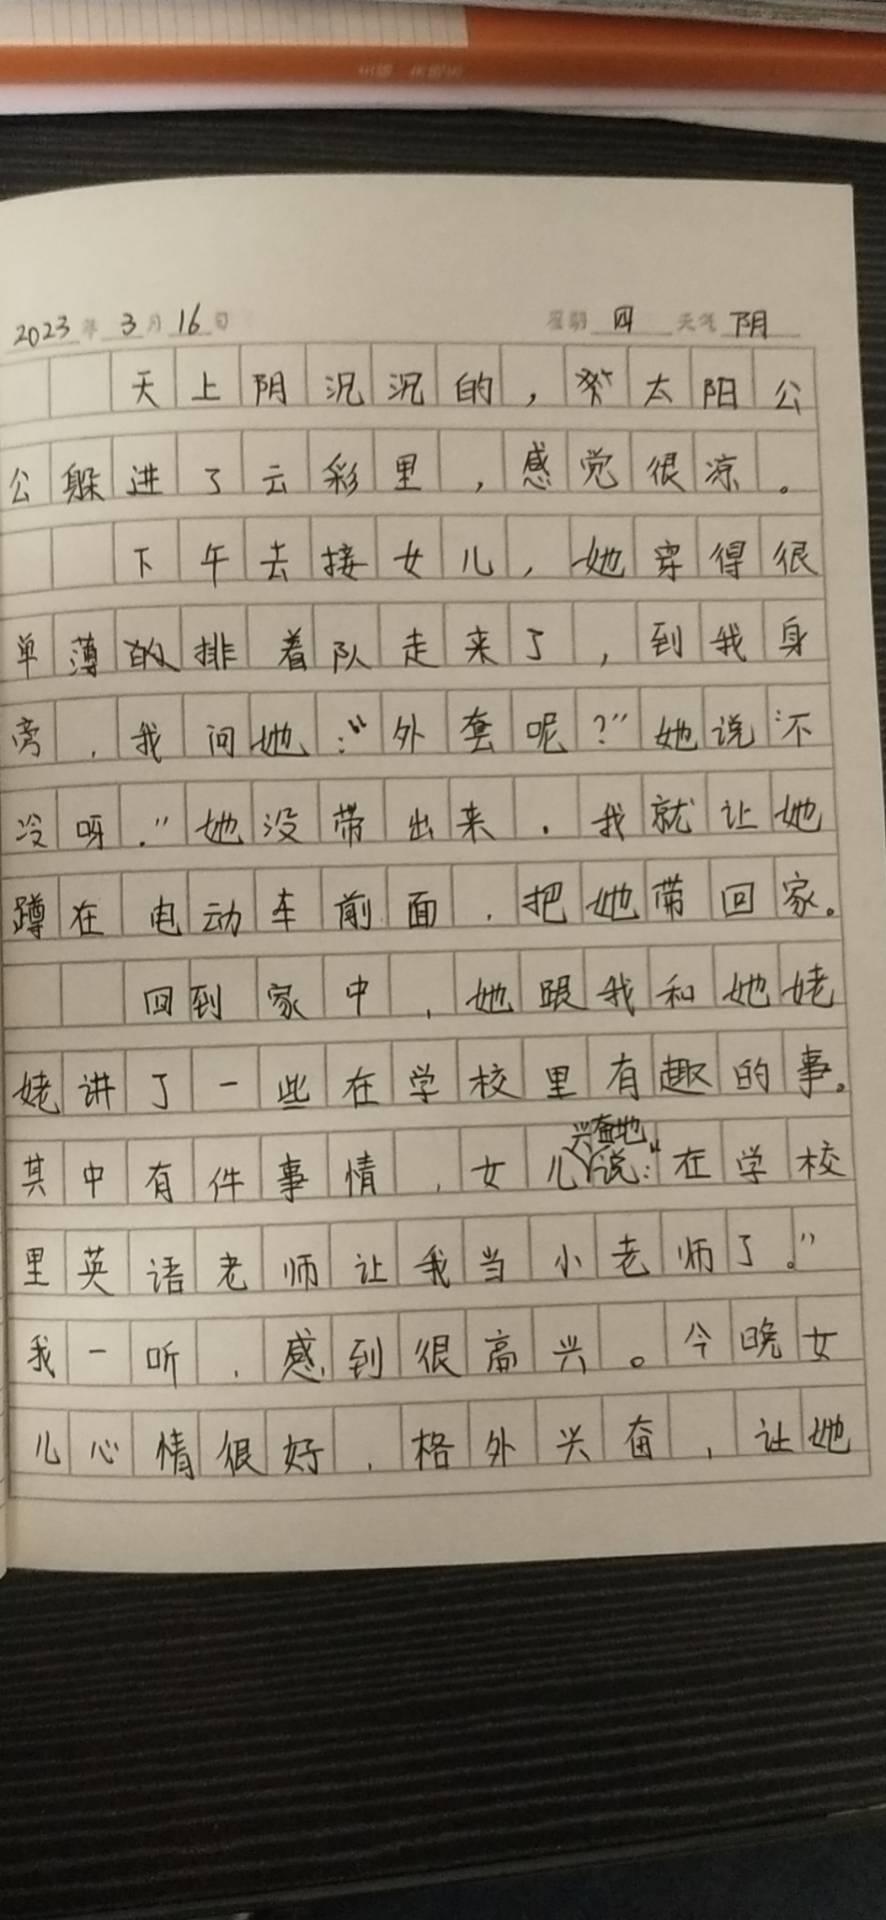 2023年3月16日 星期四 天气阴
天上阴沉沉的，太阳公
公躲进了云彩里，感觉很凉。
下午去接女儿，她穿得很
单薄的排着队走来了，到我身
旁，我问她：“外套呢？”她说：“不
冷呀.”她没带出来.我就让她
蹲在电动车前面，把她带回家。
回到家中，她跟我和她姥
姥讲了一些在学校里有趣的事。
其中有件事情，女儿兴奋地说：“在学校
里英语老师让我当小老师了。”
我一听，感到很高兴。今晚女
儿心情很好，格外兴奋，让她